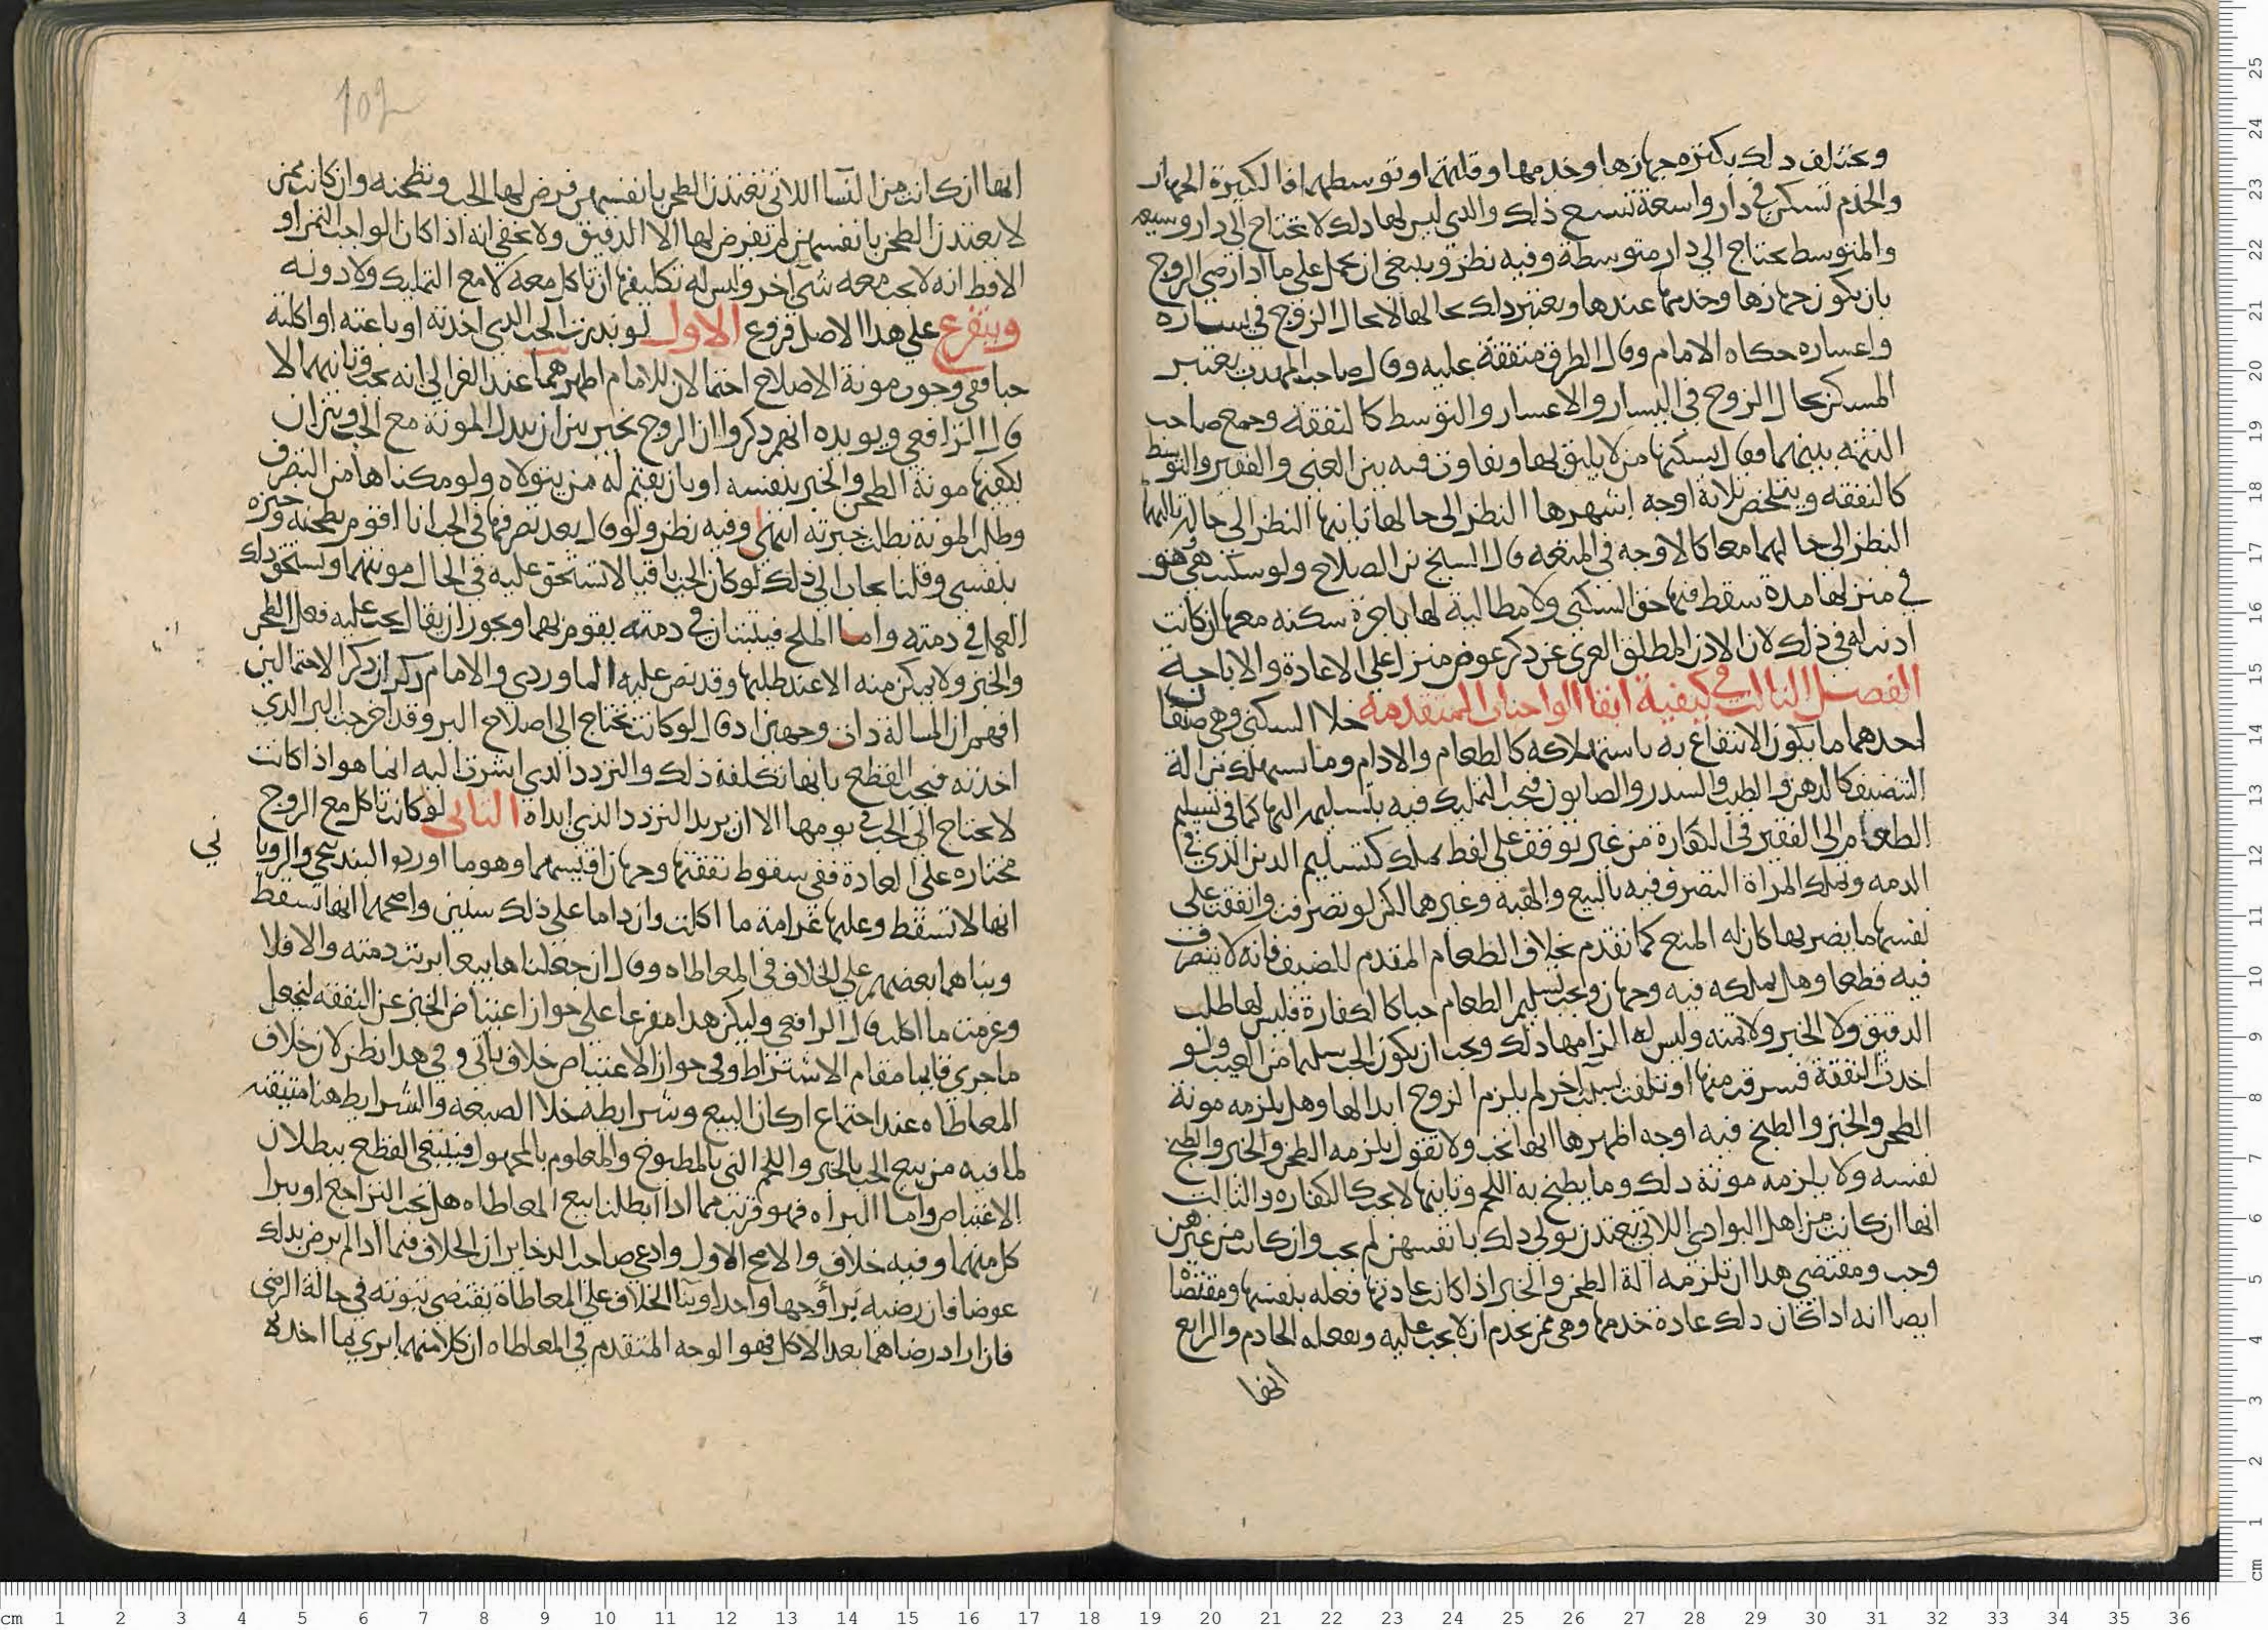 ويختلف ذلك بكثرة جهازها وخدمها وقلتهم او توسطهم اذا الكبيرة الجهاز
والخدم تسكن في دار واسعة تسع ذلك والذي ليس لها ذلك لا تحتاج الى دار وسيعه
والمتوسط يحتاج الي دار متوسطة وفيه نظر وينبغي ان يحمل على ما اذا رضي الزوج
بان يكون جهازها وخدمها عندها ويعتبر ذلك بحالها لا بحال الزوج في يساره
واعساره حكاه الامام وقال الطرق متفقة عليه وقال صاحب المهذب يعتبر
المسكن بحال الزوج في اليسار والاعسار والتوسط كالنفقة وجمع صاحب
التتمه بينهما فقال يسكنها منزلا يليق بها ويفاوت فيه بين الغني والفقير والتوسط
كالنفقه ويتلخص ثلاثة اوجه اشهرها النظر الى حالها ثانيها النظر الى حاله ثالثها
النظر الى حالهما معا كالاوجه في المتعه قال الشيخ ابن الصلاح ولو سكنت هي وهو
في منزلها مدة سقط فيها حق السكنى ولا مطالبة لها باجرة سكنه معها ان كانت
اذنت له في ذلك لان الاذن المطلق العري عن ذكر عوض منزل على الاعادة والاباحة
الفصل الثالث في كيفية انفاق الواجبات المتقدمه خلا السكنى وهي صنفان
احدهما ما يكون الانتفاع به باستهلاكه كالطعام والادام وما تستهلك من الة
التنظيف كالدهن والطيب والسدر والصابون فيجب التمليك فيه بتسليمه اليها كما في تسليم
الطعام الى الفقير في الكفارة من غير توقف على لفظ يملك كتسليم الدين الذي في
الذمه وتملك المراة التصرف فيه بالبيع والهبة وغيرهما لكن لو تصرفت وانفقت على
نفسها ما يضر بها كان له المنع كما تقدم بخلاف الطعام المقدم للضيف فانه لا يتصرف
فيه قطعا وهل يملكه فيه وجهان ويجب تسليم الطعام حبا كالكفارة فليس لها طلب
الدقيق ولا الخبز ولا ثمنه وليس له الزامها ذلك ويجب ان يكون الحب سليما من العيب ولو
اخذت النفقة فسرقت منها او تلفت بسبب آخر لم يلزم الزوج ابدالها وهل يلزمه مونة
الطحن والخبز والطبخ فيه اوجه اظهرها انها تجب ولا تقول يلزمه الطحن والخبز والطبخ
نفسه ولا يلزمه مونة ذلك وما يطبخ به اللحم وثانيها لا يجب كالكفاره والثالث
انها ان كانت من اهل البوادي اللاتي يعتدن تولي ذلك بانفسهن لم يجب وان كانت من غيرهن
وجب ومقتضي هذا ان تلزمه آلة الطحن والخبز اذا كانت عادتها فعله بنفسها ومقتضاه
ايضا انه اذا كان ذلك عادة خدمها وهي ممن يخدم ان لا يجب عليه ويفعله الخادم والرابع
انها
102
انها ان كانت من النسا اللاتي تعتدن الطحن بانفسهن فرض لها الحب وتطحنه وان كانت ممن
لا يعتدن الطحن بانفسهن لم تفرض لها الا الدقيق ولا يخفي انه اذا كان الواجب التمر او
الاقط انه لا يجب معه شي آخر وليس له تكليفها ان تاكل معه لا مع التمليك ولا دونه
ويتفرع علي هذا الاصل فروع الاول لو بذرت الحب الذي اخذته او باعته او اكلته
حبا ففي وجوب مونة الاصلاح احتمالان للامام اظهرهما عند الغزالي انه يجب وثانيهما لا
قال الرافعي ويويده انهم ذكروا ان الزوج يخير بين ان يبذل المونة مع الحب وبين ان
يكفيها مونة الطحن والخبز بنفسه او بان يقيم له من يتولاه ولو مكناها من التصرف
وطلب المونة بطلت خيرته انتهى وفيه نظر ولو قال بعد تصرفها في الحب انا اقوم بطحنه وخبزه
بنفسي وقلنا يجاب الي ذلك لو كان الحب باقيا لا تستحق عليه في الحال مونتهما وتستحق ذلك
العمل في ذمته واما الملح فيثبتان في ذمته يقوم بهما ويجوز ان يقال يجب عليه فعل الطحن
والخبز ولا يمكن منه الا عند طلبها وقد نص عليه الماوردي والامام ذكر ان ذكر الاحتمالين
افهم ان المسالة ذات وجهين اذ قال لو كانت تحتاج الى اصلاح البر وقد اخرجت البر الذي
اخذته فيجب القطع بانها تكلفه ذلك والتردد الذي اشرت اليه انما هو اذا كانت
لا تحتاج الي الحب في يومها الا ان يريد التردد الذي ابداه الثاني لو كانت تاكل مع الزوج
مختاره على العادة ففي سقوط نفقتها وجهان اقيسهما وهو ما اورده البندنيجي والرويا ني
انها لا تسقط وعليها غرامة ما اكلت وان داما على ذلك سنين واصحهما انها تسقط
وبناهما بعضهم على الخلاف في المعاطاه وقال ان جعلناها بيعا برئت ذمته والا فلا
وغرمت ما اكلت قال الرافعي وليكن هذا مفرعا على جواز اعتياض الخبز عن النفقه ليجعل
ما جري قايما مقام الاشتراط وفي جواز الاعتياض خلاف ياتي وفي هذا نظر لان خلاف
المعاطاه عند اجتماع اركان البيع وشرايطه خلا الصيغه والشرايط هنا منتفيه
لما فيه من بيع الحب بالخبز واللحم الني بالمطبوخ والمعلوم بالمجهول فينبغي القطع ببطلان
الاعتياض واما البراه فهو قريب مما اذا ابطلنا بيع المعاطاه هل يجب التراجع او يبرا
كل منهما وفيه خلاف والاصح الاول وادعي صاحب الذخاير ان الخلاف فيما اذا لم يرض بذلك
عوضا فان رضيه برا وجها واحدا وبنا الخلاف علي المعاطاة يقتضي ثبوته في حالة الرضى
فان اراد رضاهما بعد الاكل فهو الوجه المتقدم في المعاطاه ان كلا منهما بري بما اخذه